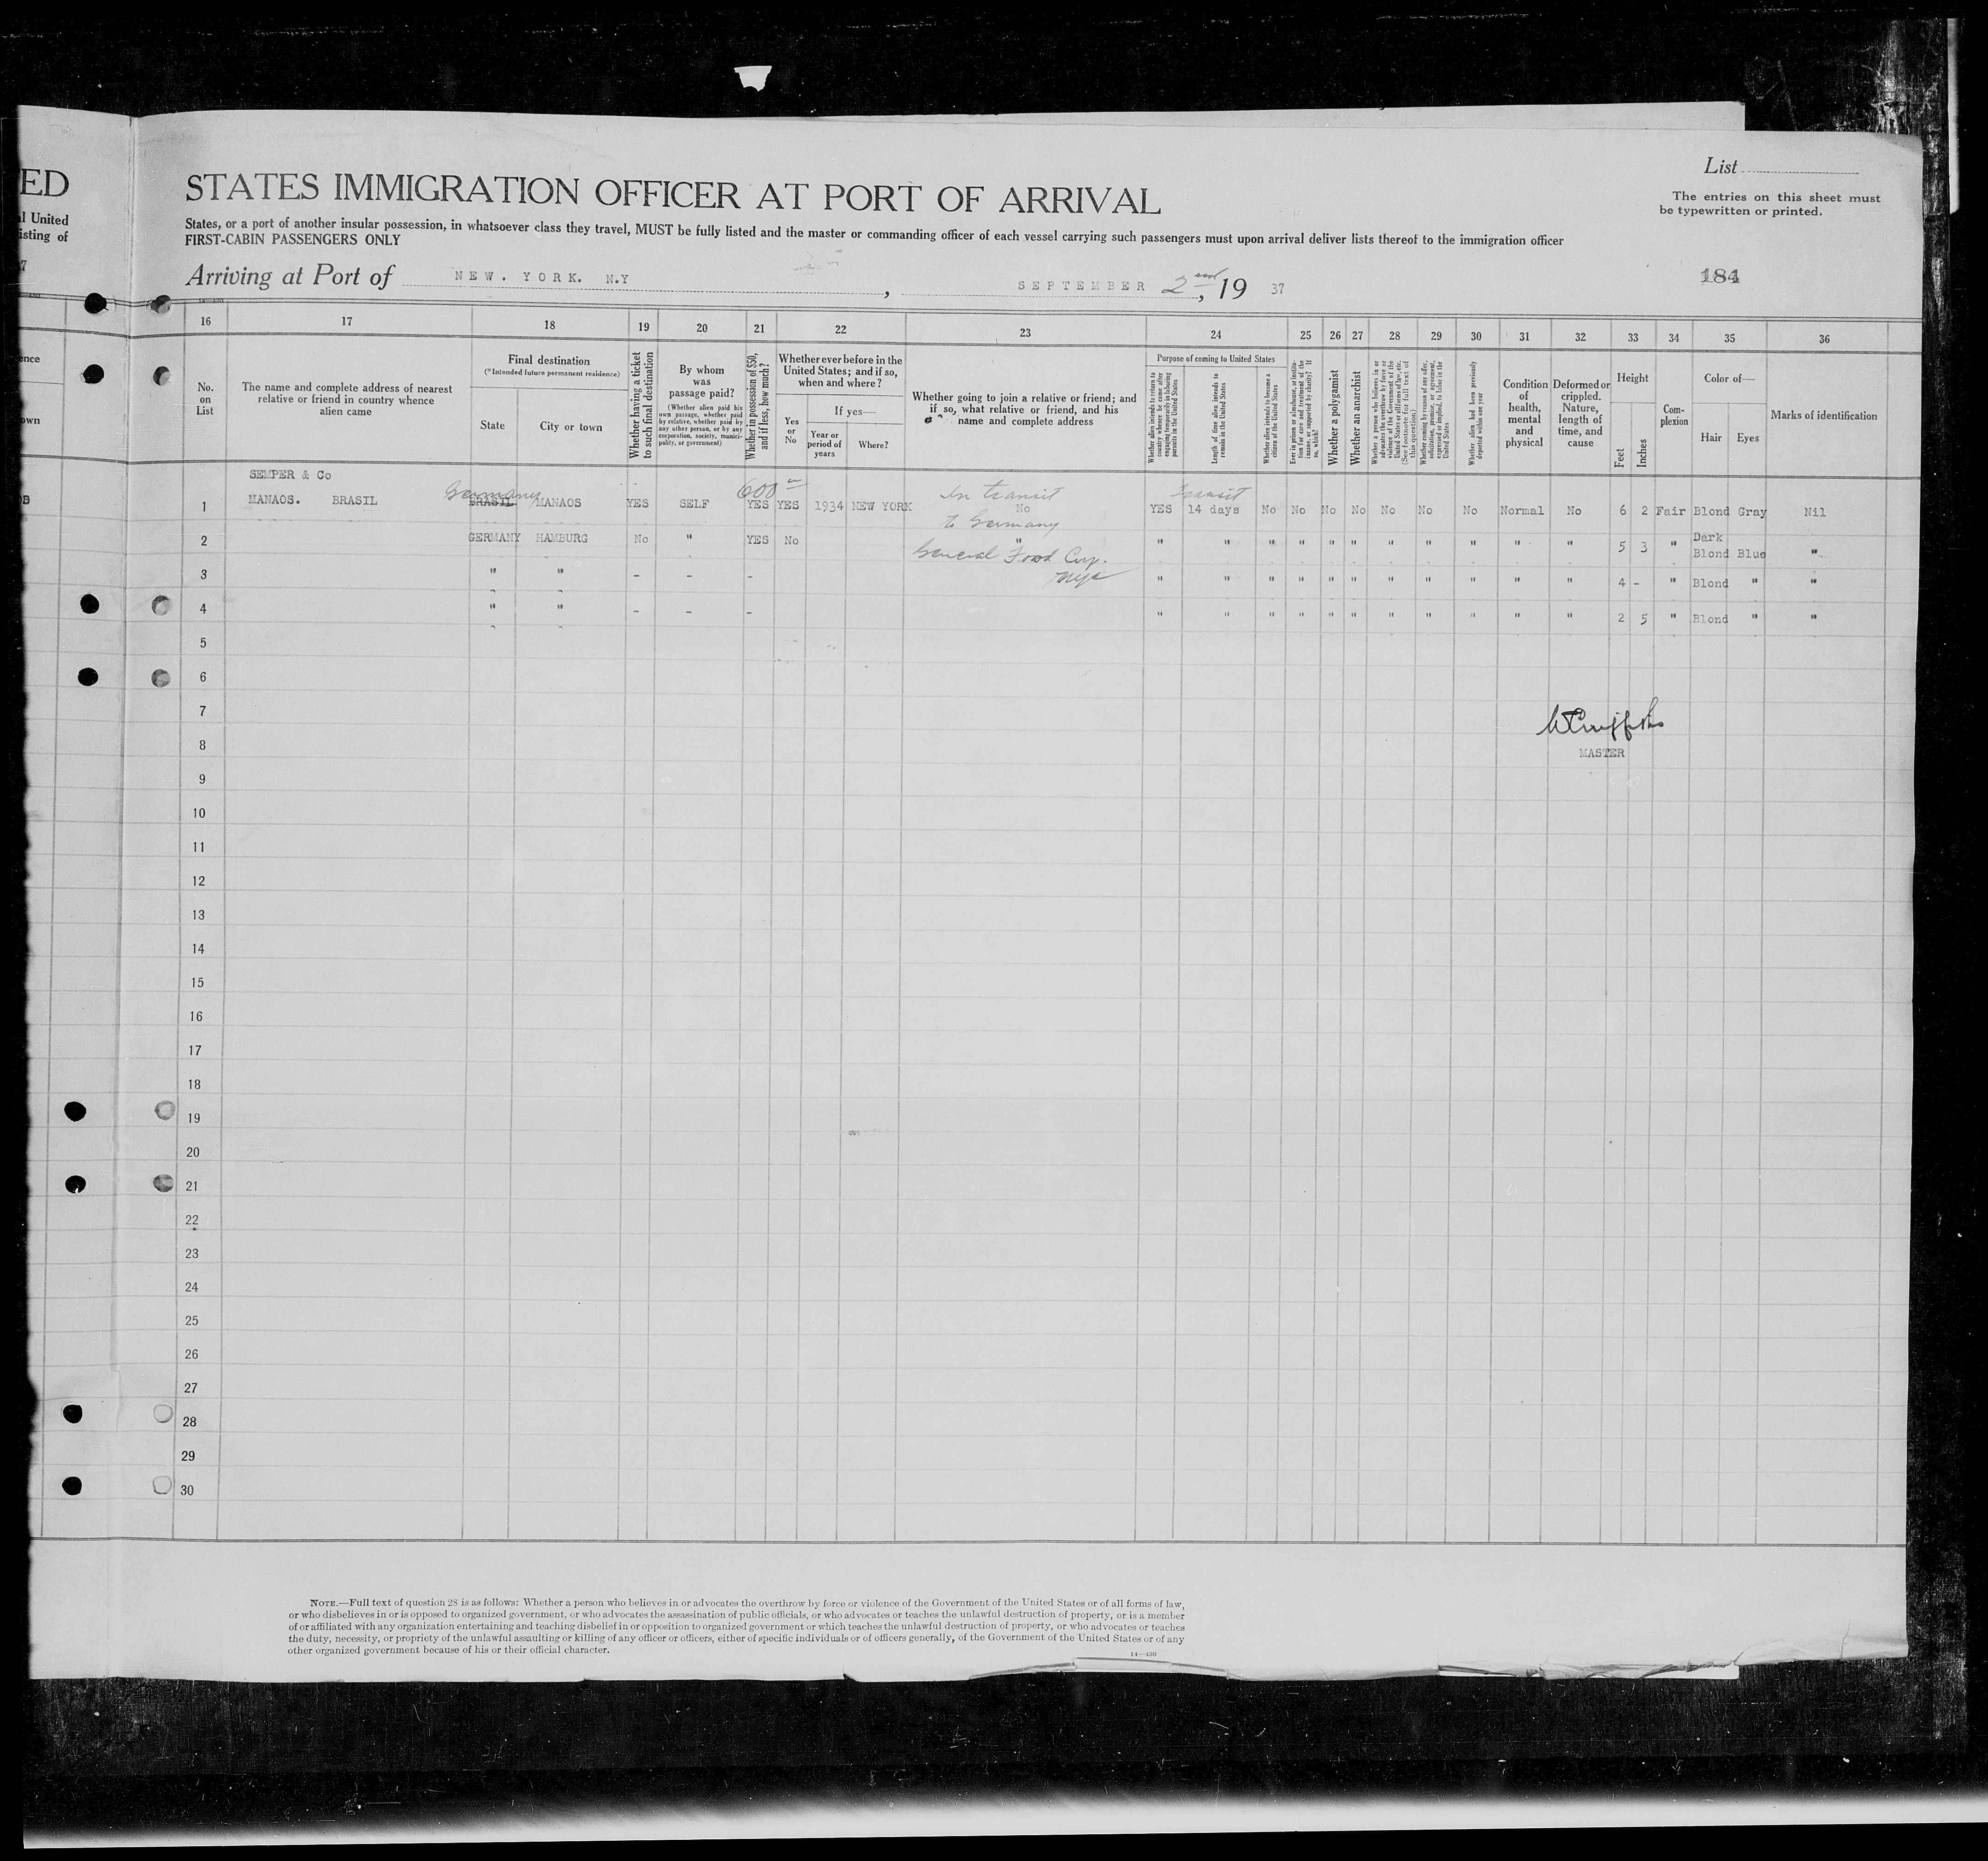 ED
al United
isting of
7
ence
own
OB
STATES IMMIGRATION OFFICER AT PORT OF ARRIVAL
List
The entries on this sheet must
be typewritten or printed.
States, or a port of another insular possession, in whatsoever class they travel, MUST be fully listed and the master or commanding officer of each vessel carrying such passengers must upon arrival deliver lists thereof to the immigration officer
FIRST-CABIN PASSENGERS ONLY
Arriving at Port of NEW. YORK. N.Y , SEPTEMBER 2nd, 19 37
184
16 17 18 19 20 21 22 23 24 25 26 27 28 29 30 31 32 33 34 35 36
No. on List
The name and complete address of nearest relative or friend in country whence alien came
Final destination
(*Intended future permanent residence)
State City or town
Whether having a ticket to such final destination
By whom was passage paid?
(Whether alien paid his own passage, whether paid by relative, whether paid by any other person, or by any corporation, society, municipality, or government)
Whether in possession of $50, and if less, how much?
Whether ever before in the United States; and if so, when and where?
Yes or No
If yes—
Year or period of years
Where?
Whether going to join a relative or friend; and if so, what relative or friend, and his name and complete address
Purpose of coming to United States
Whether alien intends to return to country whence he came after engaging temporarily in laboring pursuits in the United States
Length of time alien intends to remain in the United States
Whether alien intends to become a citizen of the United States
Ever in prison or almshouse, or institution for care and treatment of the insane, or supported by charity? If so, which?
Whether a polygamist
Whether an anarchist
Whether a person who believes in or advocates the overthrow by force or violence of the Government of the United States or all forms of law, etc. (See footnote for full text of this question)
Whether coming by reason of any offer, solicitation, promise, or agreement, expressed or implied, to labor in the United States
Whether alien had been previously deported within one year
Condition of health, mental and physical
Deformed or crippled. Nature, length of time, and cause
Height
Feet Inches
Com-plexion
Color of—
Hair Eyes
Marks of identification
SEMPER & Co
1 MANAOS. BRASIL Germany BRASIL MANAOS YES SELF 600 YES YES 1934 NEW YORK In transit No YES transit 14 days No No No No No No No Normal No 6 2 Fair Blond Gray Nil
to Germany
2 GERMANY HAMBURG No " YES No " " " " " " " " " " " " 5 3 " Dark Blond Blue "
General Food Corp.
NYC
3 " " - - - " " " " " " " " " " " 4 - " Blond " "
4 " " - - - " " " " " " " " " " " 2 5 " Blond " "
5
6
7
8
MASTER
9
10
11
12
13
14
15
16
17
18
19
20
21
22
23
24
25
26
27
28
29
30
NOTE.—Full text of question 28 is as follows: Whether a person who believes in or advocates the overthrow by force or violence of the Government of the United States or of all forms of law,
or who disbelieves in or is opposed to organized government, or who advocates the assassination of public officials, or who advocates or teaches the unlawful destruction of property, or is a member
of or affiliated with any organization entertaining and teaching disbelief in or opposition to organized government or which teaches the unlawful destruction of property, or who advocates or teaches
the duty, necessity, or propriety of the unlawful assaulting or killing of any officer or officers, either of specific individuals or of officers generally, of the Government of the United States or of any
other organized government because of his or their official character.
14—430